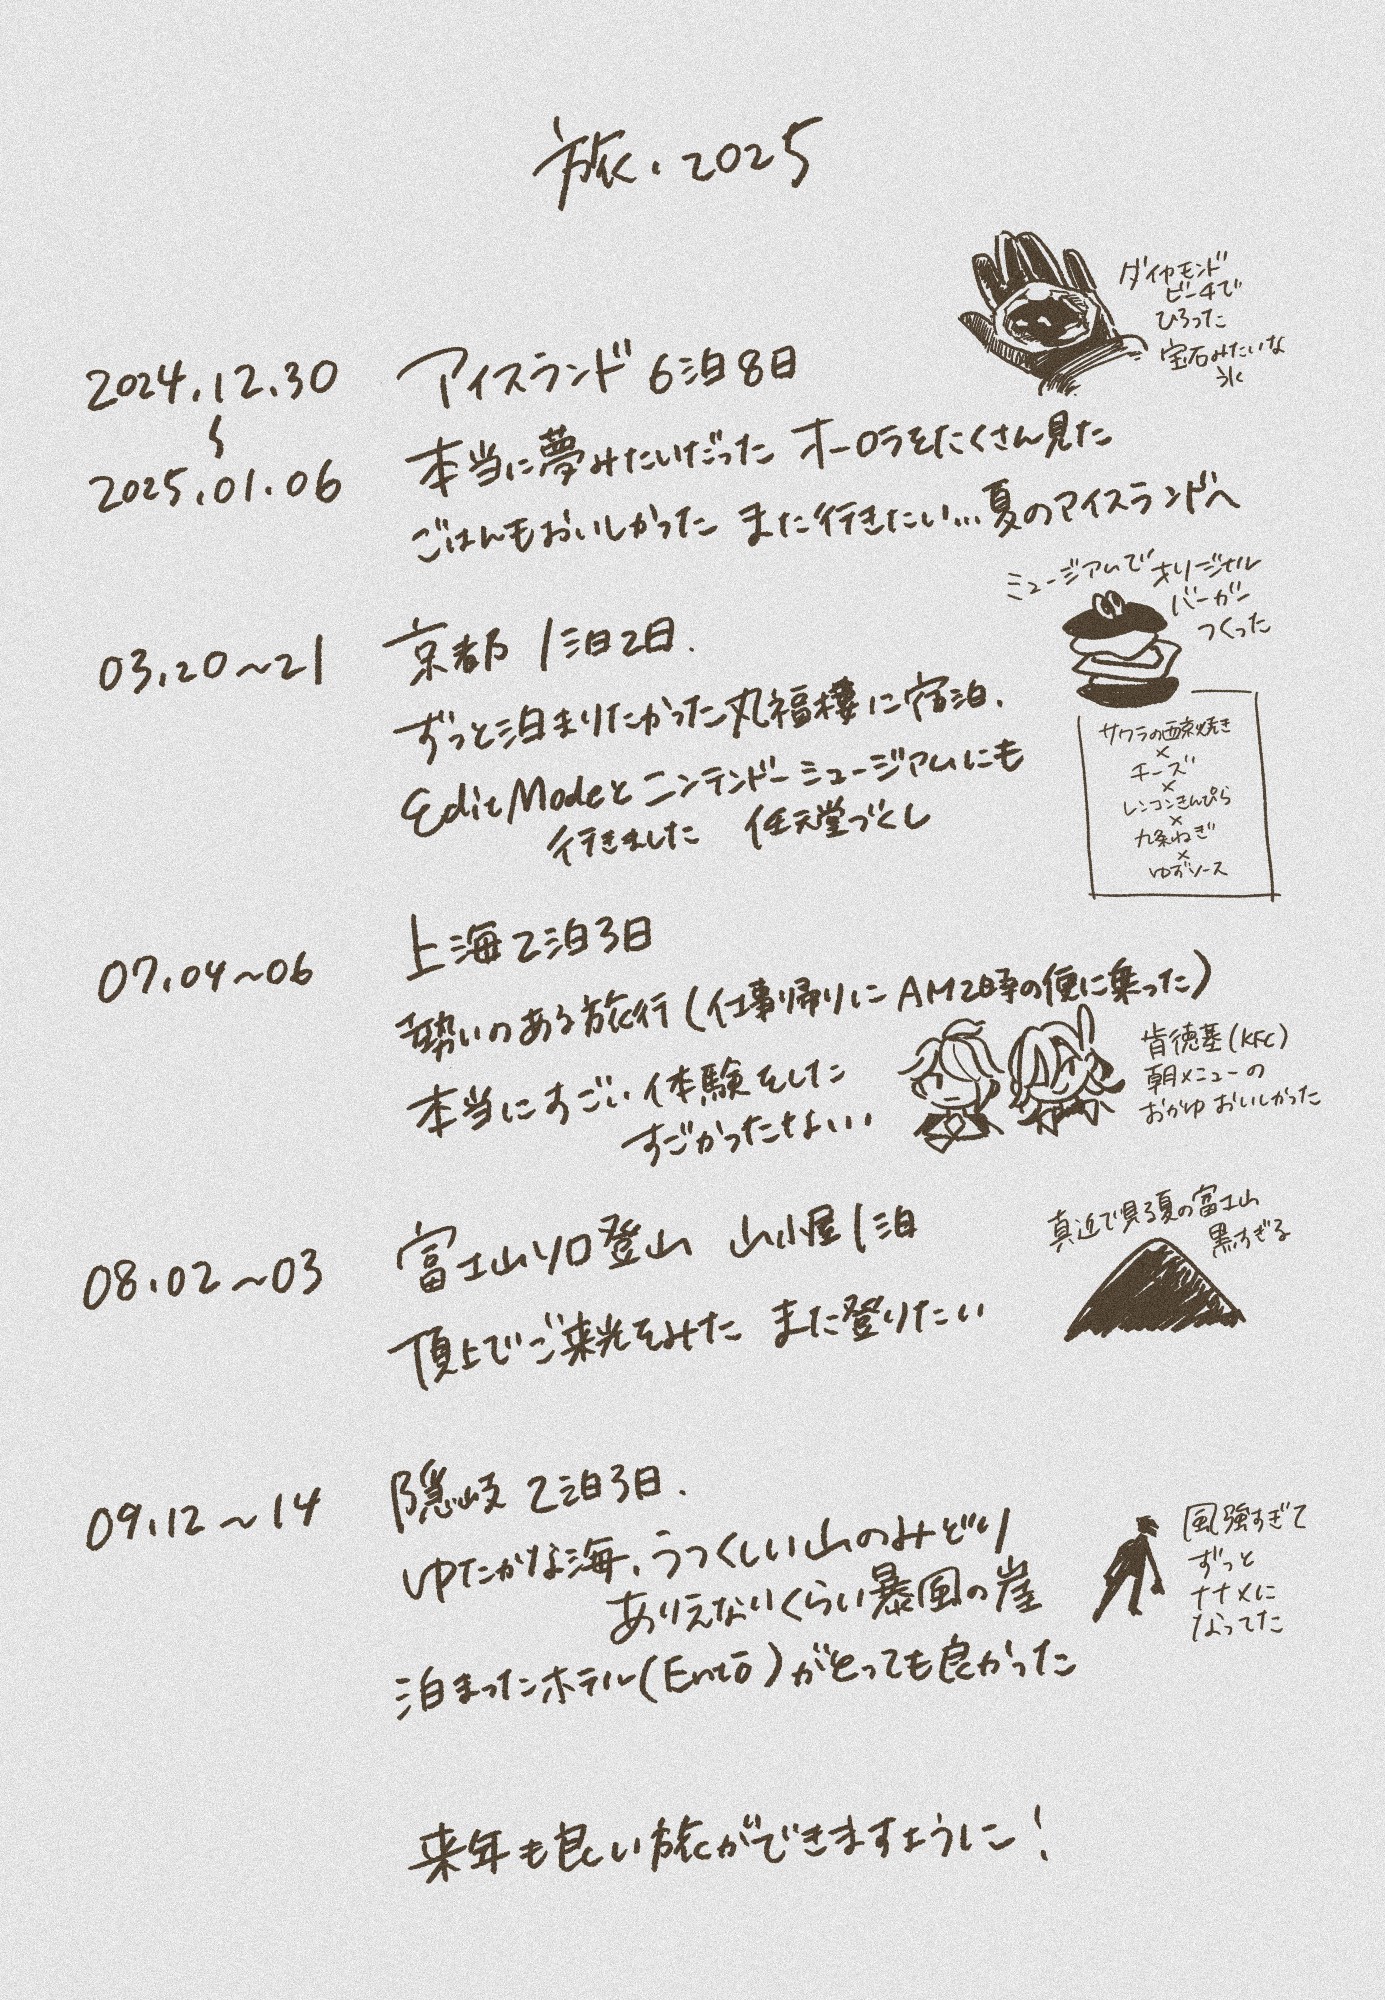 旅．2025
ダイヤモンド
ビーチで
ひろった
宝石みたいな
氷
2024.12.30
〜
2025.01.06
アイスランド 6泊8日
本当に夢みたいだった オーロラをたくさん見た
ごはんもおいしかった また行きたい…夏のアイスランドへ
ミュージアムで オリジナル
バーガー
つくった
サワラの西京焼き
×
チーズ
×
レンコンきんぴら
×
九条ねぎ
×
ゆずソース
03.20〜21
京都 1泊2日.
ずっと泊まりたかった丸福樓に宿泊.
Edit Modeとニンテンドーミュージアムにも
行きました 任天堂づくし
07.04〜06
上海2泊3日
勢いのある旅行(仕事帰りにAM2時の便に乗った)
本当にすごい体験をした
すごかったなぁ…
肯德基(KFC)
朝メニューの
おかゆ おいしかった
08.02〜03
富士山ソロ登山 山小屋1泊
頂上でご来光をみた また登りたい
真近で見る夏の富士山
黒すぎる
09.12〜14
隠岐 2泊3日.
ゆたかな海、うつくしい山のみどり
ありえないくらい暴風の崖
泊まったホテル(Entō)がとっても良かった
風強すぎて
ずっと
ナナメに
なってた
来年も良い旅ができますように!